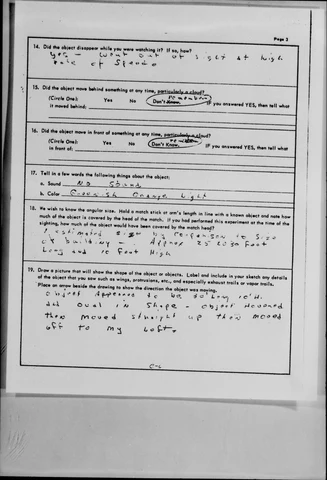 Page 3
14. Did the object disappear while you were watching it? If so, how?
yes - went out of sight at high
rate of speed
15. Did the object move behind something at any time, particularly a cloud?
remember
(Circle One): Yes No Don't Know. If you answered YES, then tell what
it moved behind:
16. Did the object move in front of something at any time, particularly a cloud?
(Circle One): Yes No Don't Know. If you answered YES, then tell what
in front of:
17. Tell in a few words the following things about the object:
a. Sound No Sound
b. Color Greenish Orange Light
18. We wish to know the angular size. Hold a match stick at arm's length in line with a known object and note how
much of the object is covered by the head of the match. If you had performed this experiment at the time of the
sighting, how much of the object would have been covered by the match head?
I estimated size by comparison to size
of building - Approx 25 to 30 foot
Long and 10 foot High
19. Draw a picture that will show the shape of the object or objects. Label and include in your sketch any details
of the object that you saw such as wings, protrusions, etc., and especially exhaust trails or vapor trails.
Place an arrow beside the drawing to show the direction the object was moving.
object Appeared to be
and oval in shape - object Hovered
then moved straight up then moved
off to my Left.